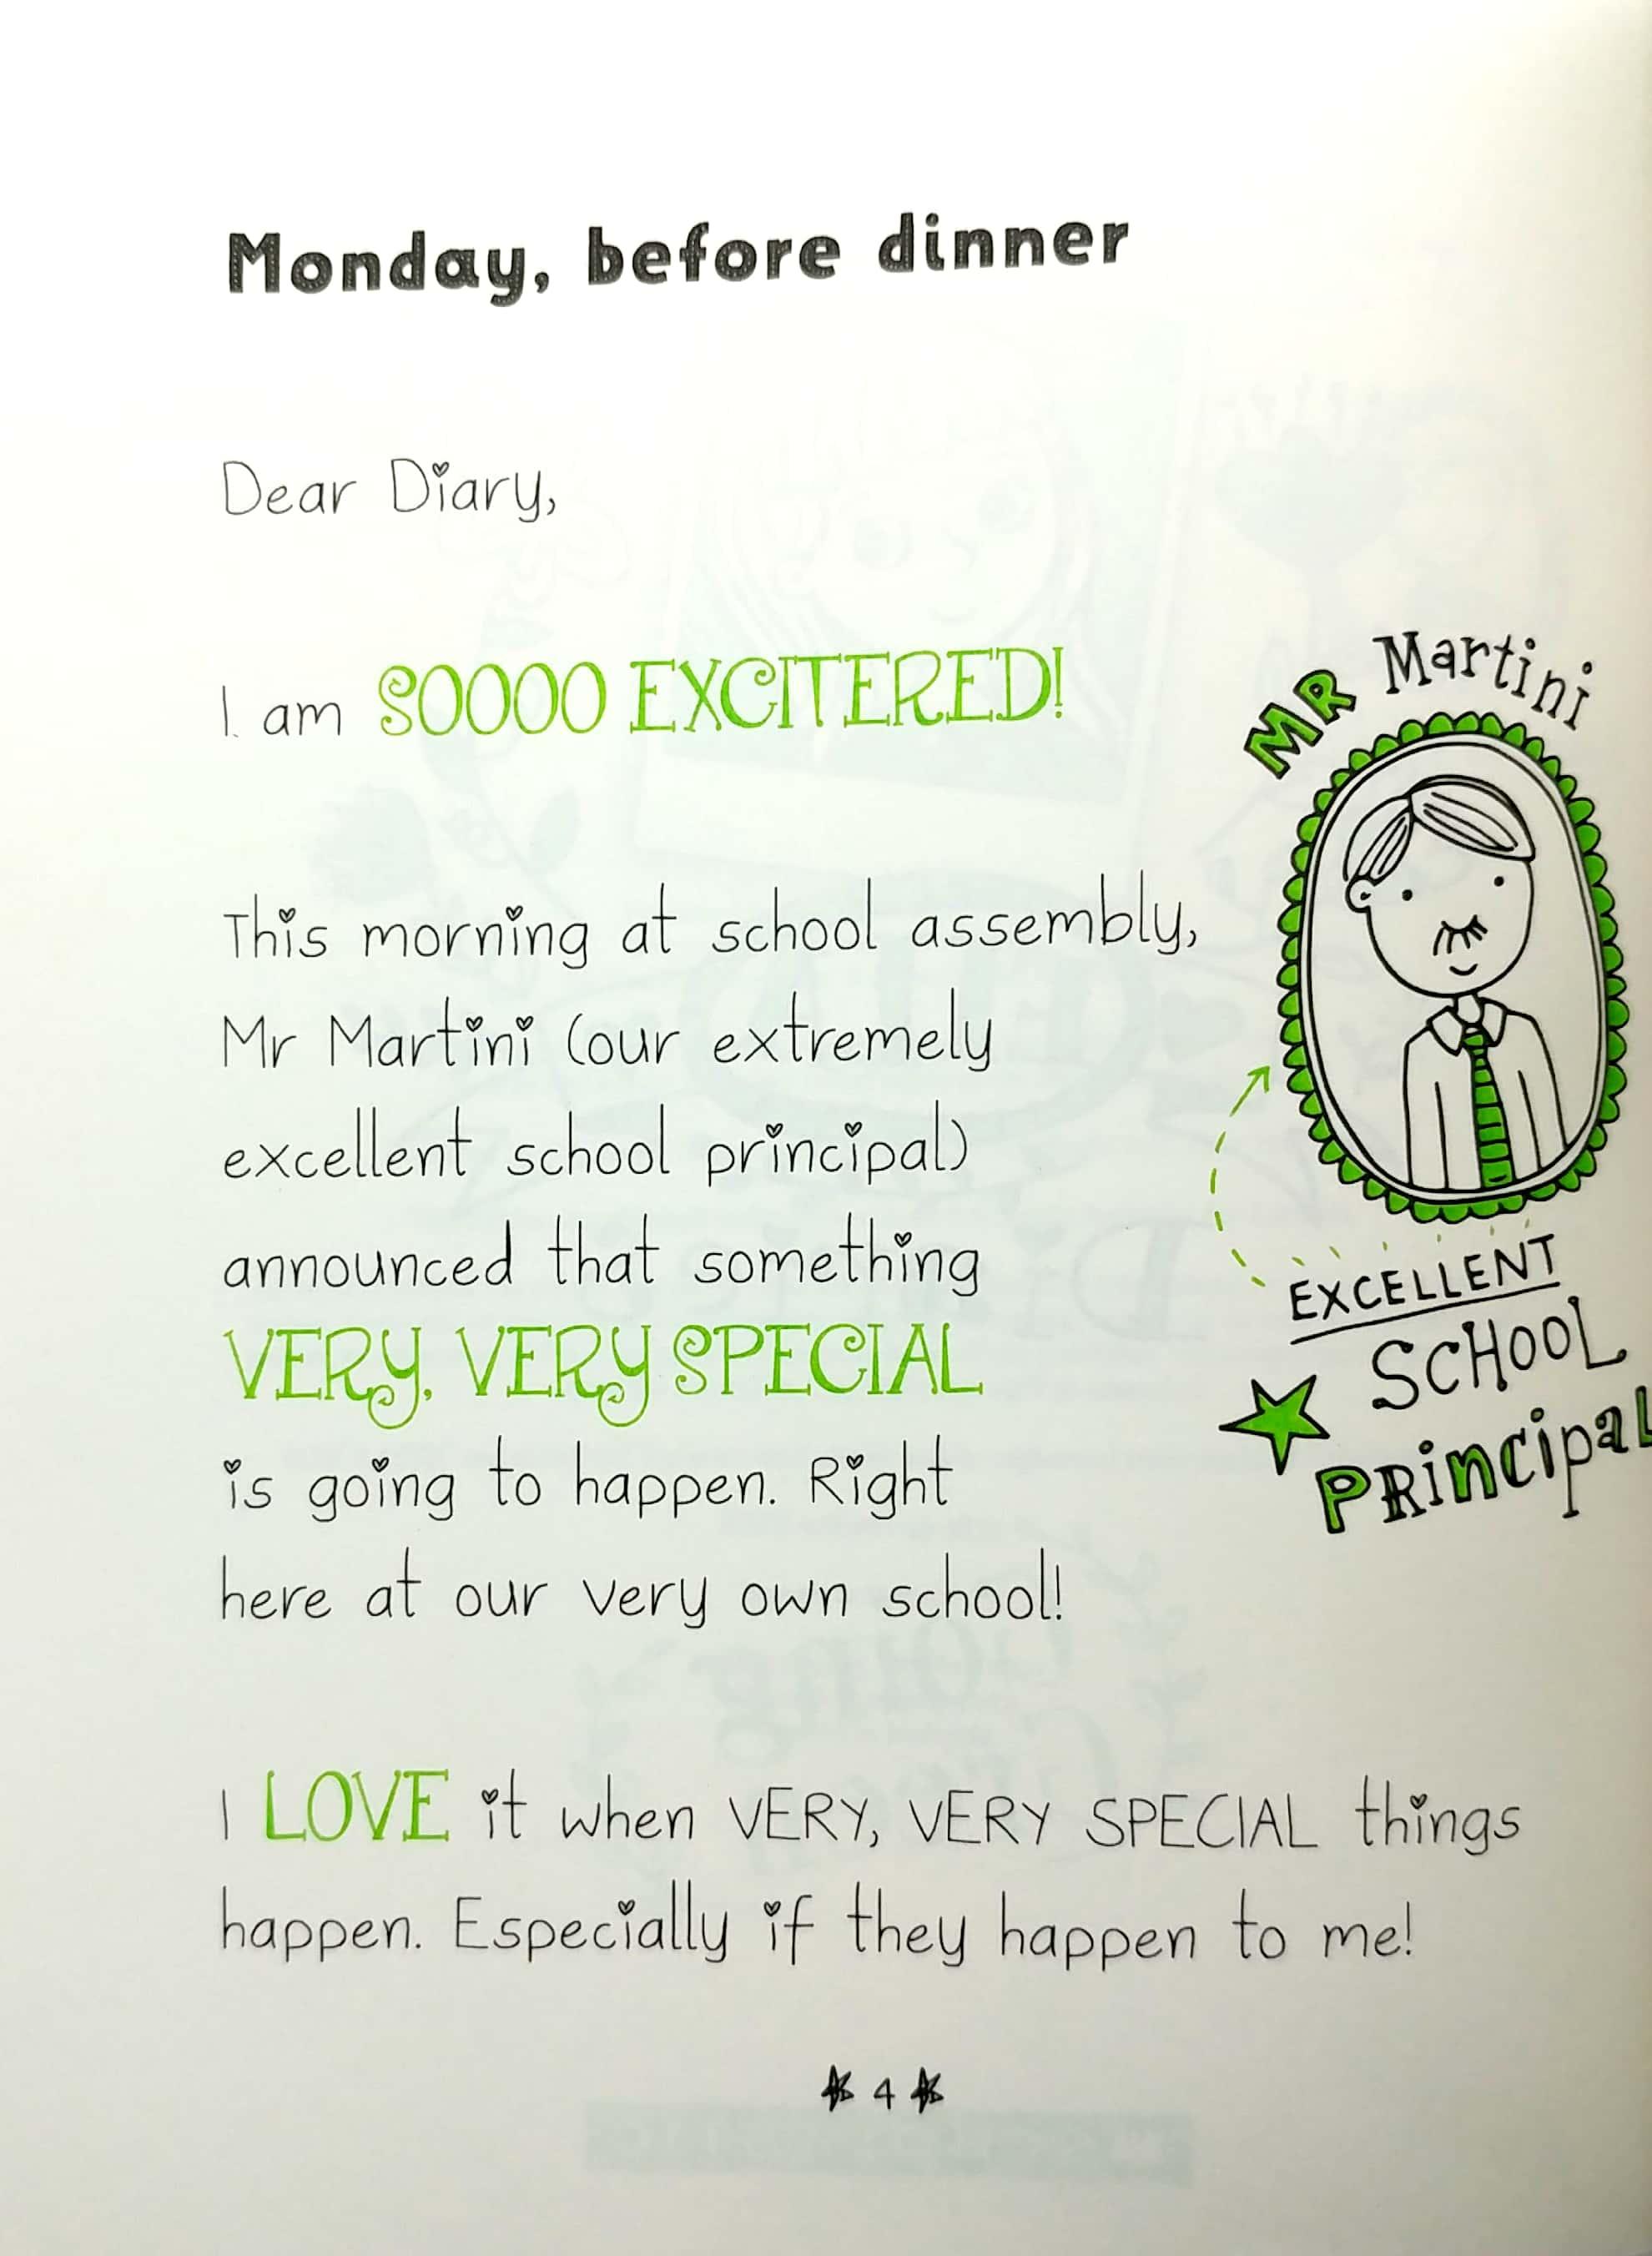 Monday, before dinner
Dear Diary,
I am SOOOO EXCITERED!
This morning at school assembly,
Mr Martini (our extremely
excellent school principal)
announced that something
VERY, VERY SPECIAL
is going to happen. Right
here at our very own school!
I LOVE it when VERY, VERY SPECIAL things
happen. Especially if they happen to me!
MR Martini
EXCELLENT
SCHOOL
PRincipal
4